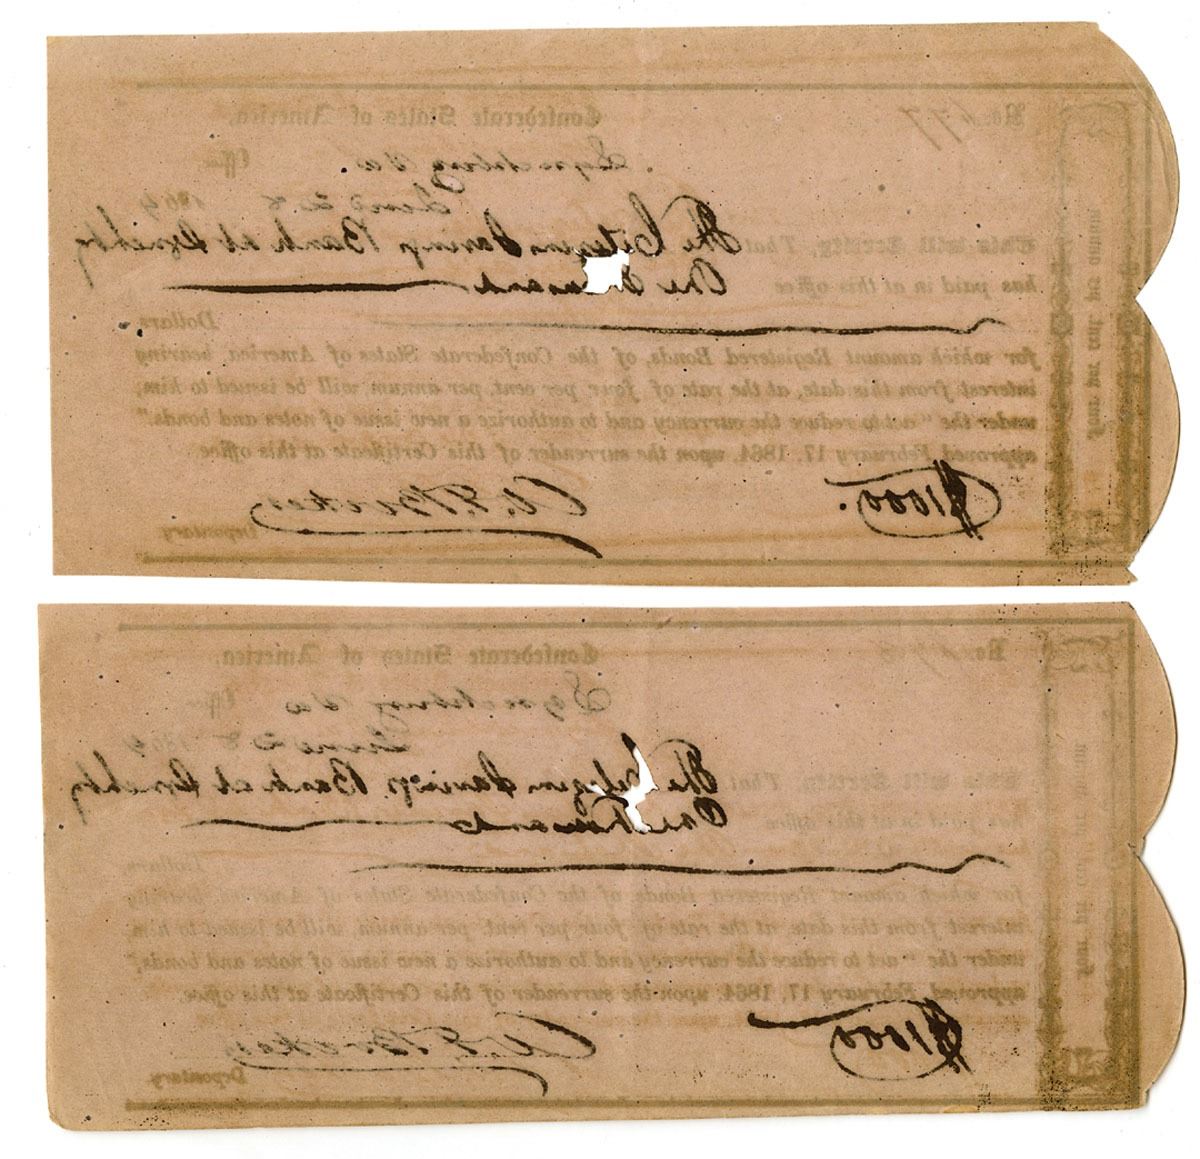 No. 177
Confederate States of America,
Lynchburg Va Office
June 28 1864
This will Certify, That The Citizens Savings Bank at Lynchbg
has paid in at this office One Thousand
Dollars
for which amount Registered Bonds, of the Confederate States of America, bearing
interest from this date, at the rate of four per cent. per annum, will be issued to him,
under the "act to reduce the currency and to authorize a new issue of notes and bonds."
approved February 17, 1864, upon the surrender of this Certificate at this office.
$1000.
Depositary
Four per cent per annum
No.
Confederate States of America,
Lynchburg Va Office
June 28 1864
This will Certify, That The Citizens Savings Bank at Lynchbg
has paid in at this office One Thousand
Dollars
for which amount Registered Bonds, of the Confederate States of America, bearing
interest from this date, at the rate of four per cent. per annum, will be issued to him,
under the "act to reduce the currency and to authorize a new issue of notes and bonds,"
approved February 17, 1864, upon the surrender of this Certificate at this office.
$1000
Depositary
Four per